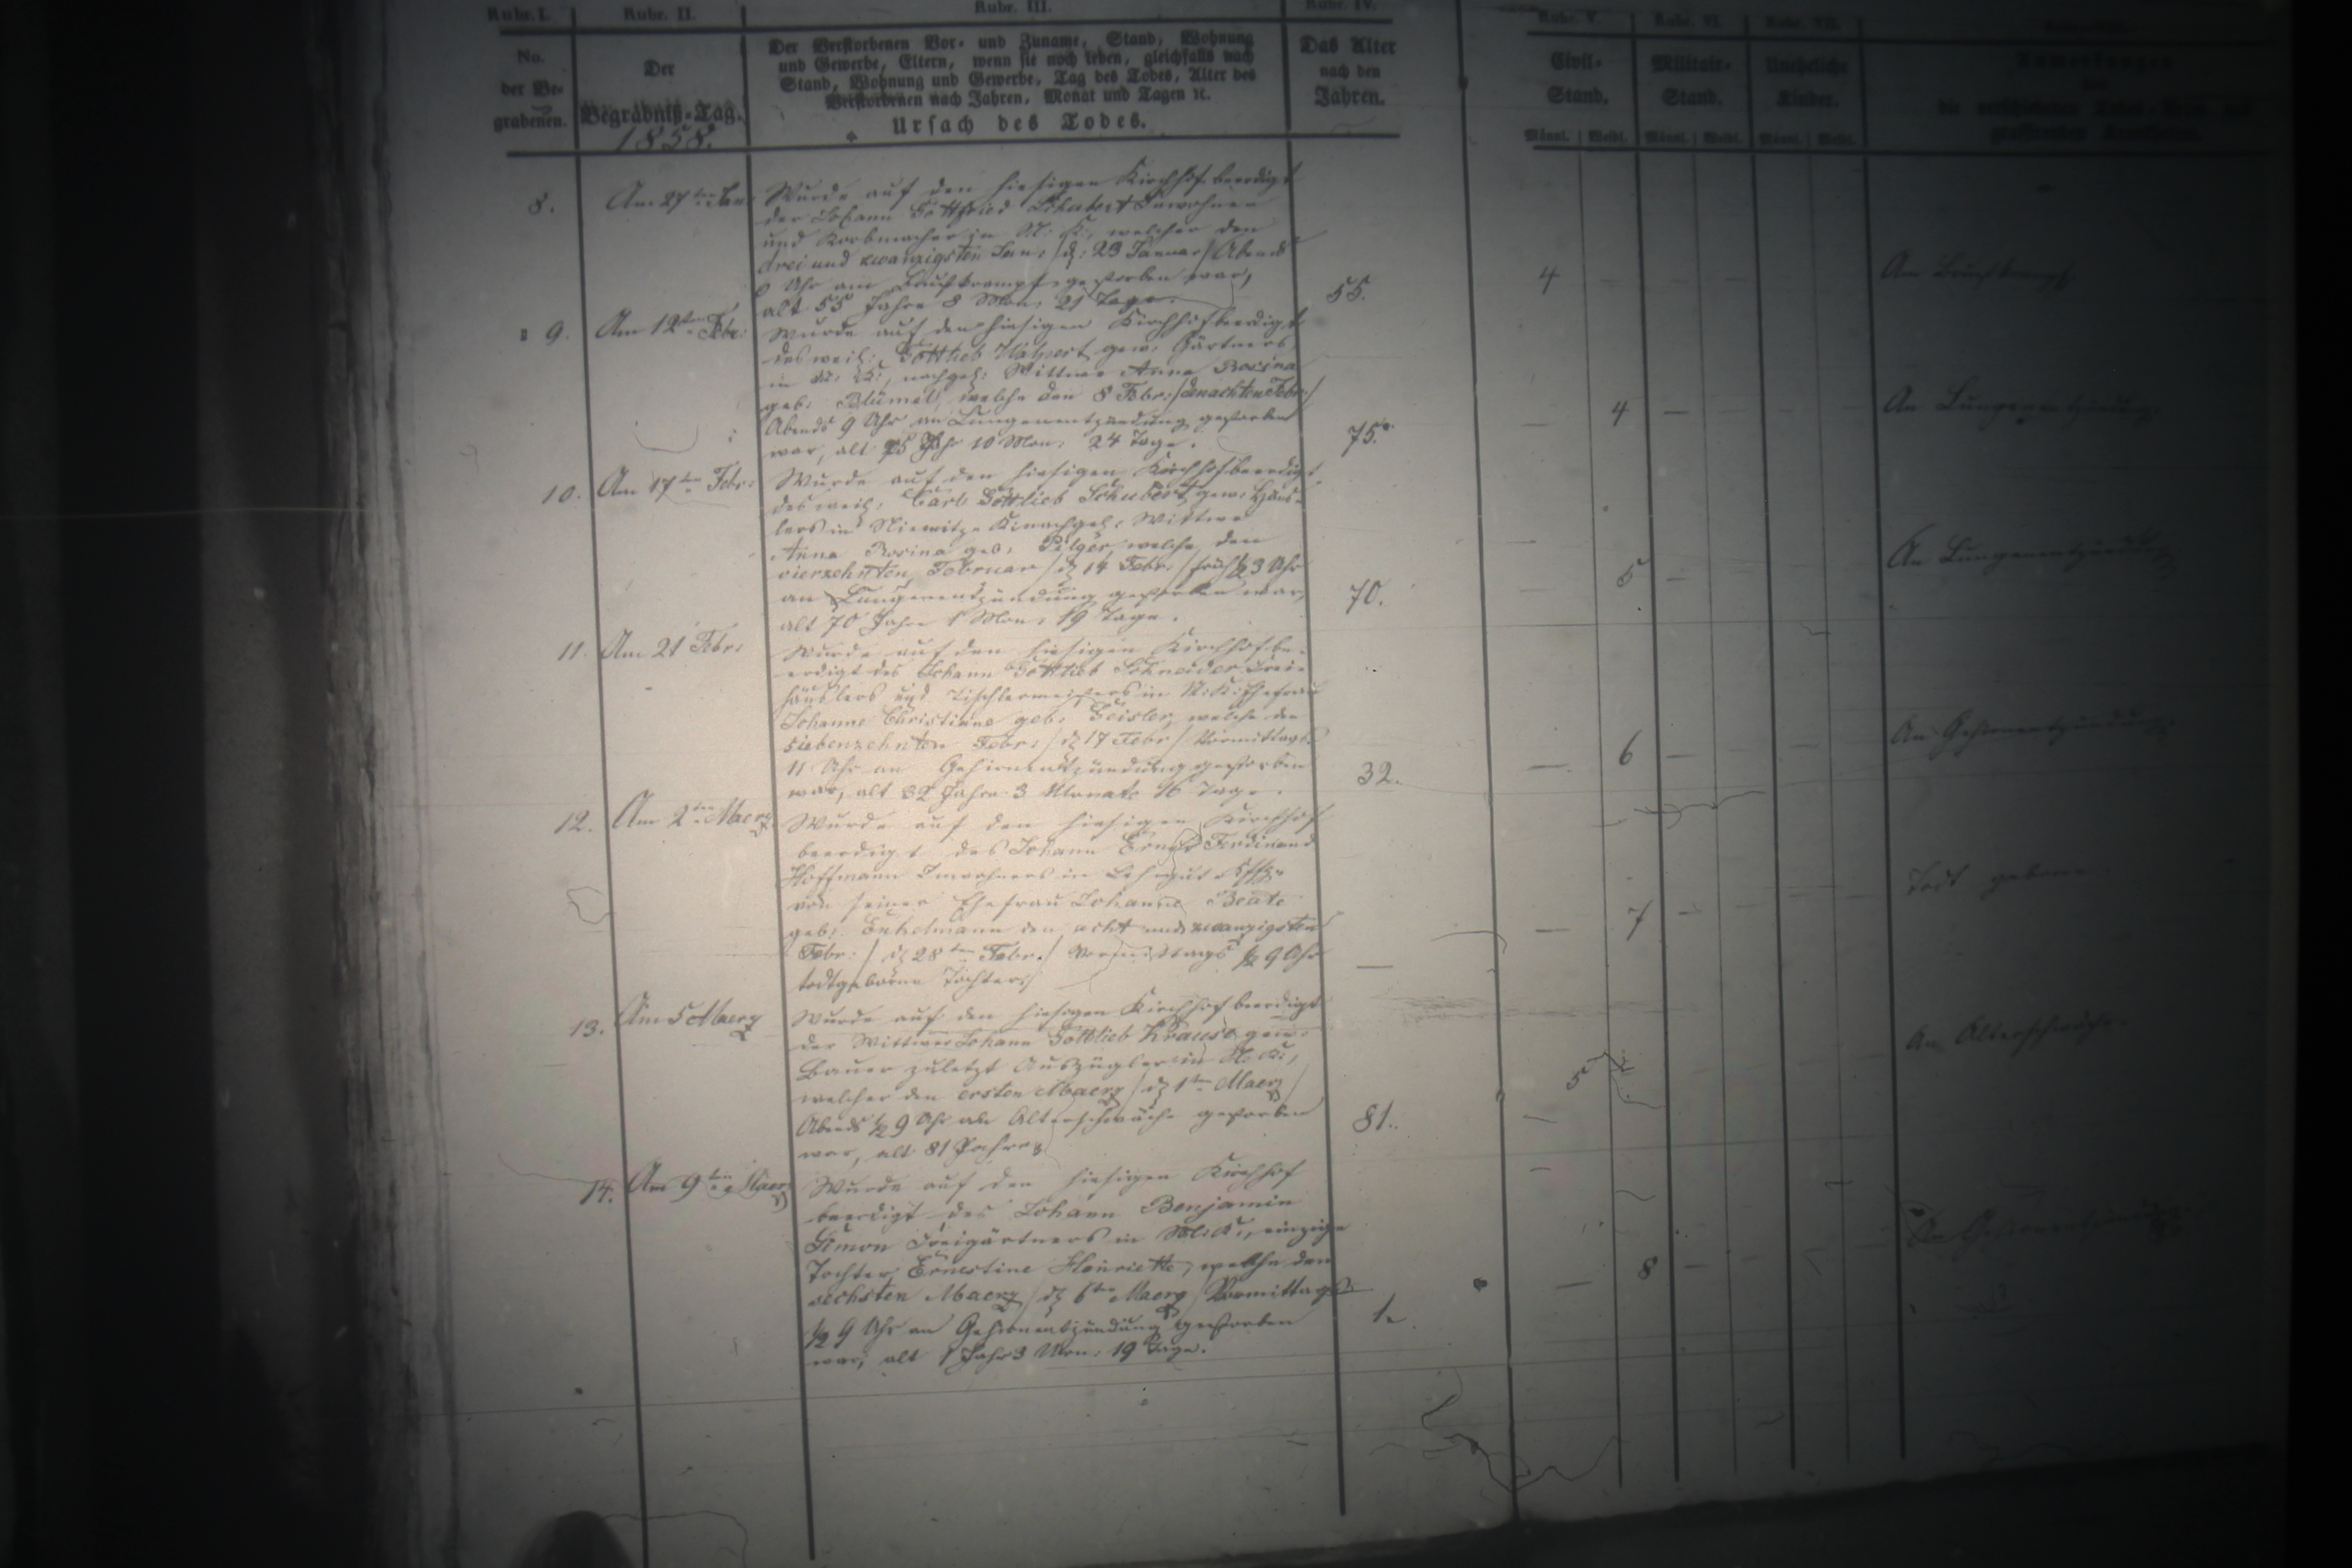 Rubr. I. Rubr. II. Rubr. III. Rubr. IV. Rubr. V. Rubr. VI. Rubr. VII.
No. der Be- grabenen.
Der Begräbniß-Tag.
1858.
Der Verstorbenen Vor- und Zuname, Stand, Wohnung
und Gewerbe, Eltern, wenn sie noch leben, gleichfalls nach
Stand, Wohnung und Gewerbe, Tag des Todes, Alter des
Verstorbenen nach Jahren, Monat und Tagen ꝛc.
Ursach des Todes.
Das Alter
nach den
Jahren.
Civil-
Stand.
Männl. Weibl.
Militair-
Stand.
Männl. Weibl.
Uneheliche
Kinder.
Männl. Weibl.
8. Am 27ten Jan: Wurde auf den hiesigen Kirchhof beerdigt
der Johann Gottfried Schubert Inwohner
und Korbmacher in N: K:, welcher den
drei und zwanzigsten Jan: /d: 23 Januar/ Abends
6 Uhr am gestorben war,
alt 55 Jahre 8 Mon: 21 Tage. 55. 4
9. Am 12ten Febr: Wurde auf den hiesigen Kirchhof beerdigt
des weil: Gottlieb gew: Gärtners
in N: K:, nachgel: Wittwe Anna Rosina
geb: Blümel, welche den 8 Febr: /den achten Febr:/
Abends 9 Uhr an Lungenentzündung gestorben
war, alt 75 Jahr 10 Mon: 24 Tage. 75. — 4 — An Lungenentzündung.
10. Am 17ten Febr: Wurde auf den hiesigen Kirchhof beerdigt
des weil: Carl Gottlieb Schubert gew: Häus-
lers in nachgel: Wittwe
Anna Rosina geb: Pilger, welche den
vierzehnten Februar /d 14 Febr:/ früh ½ 3 Uhr
an Lungenentzündung gestorben war,
alt 70 Jahre 1 Mon: 19 Tage. 70. — 5 — An Lungenentzündung
11. Am 21 Febr: Wurde auf den hiesigen Kirchhof be-
erdigt des Johann Gottlieb Schneider Frei-
häuslers und Tischlermeisters in N: K: Ehefrau
Johanne Christiane geb: Geisler, welche den
siebenzehnten Febr: /d 17 Febr/ Vormittags
11 Uhr an Gehirnentzündung gestorben
war, alt 32 Jahre 3 Monate 16 Tage. 32. — 6 — An Gehirnentzündung.
12. Am 2ten Maerz Wurde auf den hiesigen Kirchhof
beerdigt des Johann Ernst Ferdinand
Hoffmann Inwohners in Lehngut
von seiner Ehefrau Johanne Beate
geb: Enkelmann den acht und zwanzigsten
Febr: /d 28ten Febr./ Vormittags ½ 9 Uhr
todtgeborne Tochter. — — 7 — Todt geboren.
13. Am 5 Maerz Wurde auf den hiesigen Kirchhof beerdigt
der Wittwer Johann Gottlieb Krause, gew:
Bauer zuletzt Auszügler in K:,
welcher den ersten Maerz /d 1ten Maerz/
Abends ½ 9 Uhr an Altersschwäche gestorben
war, alt 81 Jahre. 81. 5 An Altersschwäche.
14. Am 9ten Maerz Wurde auf den hiesigen Kirchhof
beerdigt des Johann Benjamin
Simon Freigärtners in K:, einzige
Tochter, Ernestine Henriette, welche den
sechsten Maerz /d 6ten Maerz/ Vormittags
½ 9 Uhr an Gehirnentzündung gestorben
war, alt 1 Jahr 3 Mon: 19 Tage. 1. — 8 — An Gehirnentzündung.